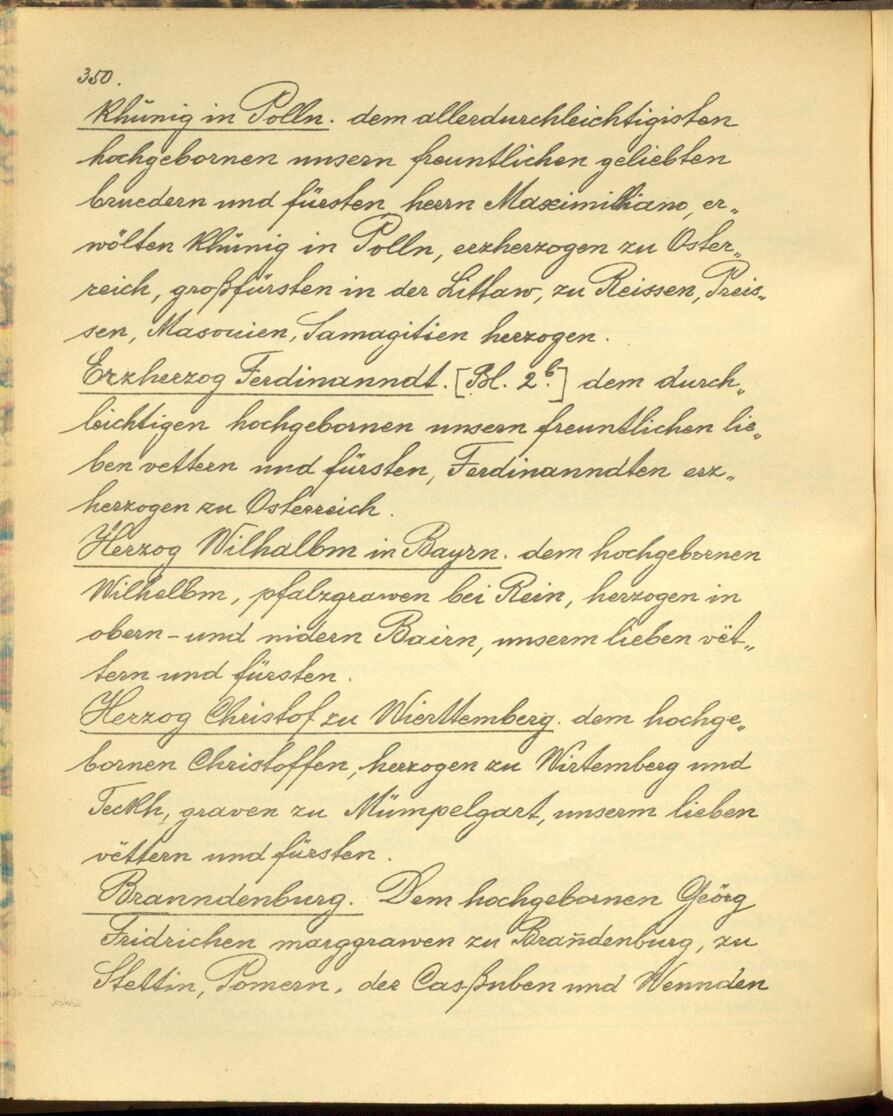 350.
Khünig in Polln. dem allerdurchleichtigisten
hochgebornen unsern freuntlichen geliebten
bruedern und fürsten, herrn Maximiliano, er„
wölten Khünig in Polln, erzherzogen zu Öster„
reich, großfürsten in der Littaw, zu Reissen, Preis„
sen, Masouien, Samagitien herzogen.
Erzherzog Ferdinanndt. [Bl. 2b.] dem durch„
leichtigen hochgebornen unsern freuntlichen lie„
ben vettern und fürsten, Ferdinanndten erz„
herzogen zu Österreich.
Herzog Wilhalbm in Bayrn. dem hochgebornen
Wilhelbm, pfalzgrawen bei Rein, herzogen in
obern- und nidern Bairn, unserm lieben vët„
tern und fürsten.
Herzog Christof zu Wierttemberg. dem hochge„
bornen Christoffen, herzogen zu Wirtemberg und
Teckh, graven zu Mümpelgart, unserm lieben
vëttern und fürsten.
Branndenburg. Dem hochgebornen Geörg
Fridrichen marggrawen zu Brañdenburg, zu
Stettin, Pomern, der Casßuben und Wennden